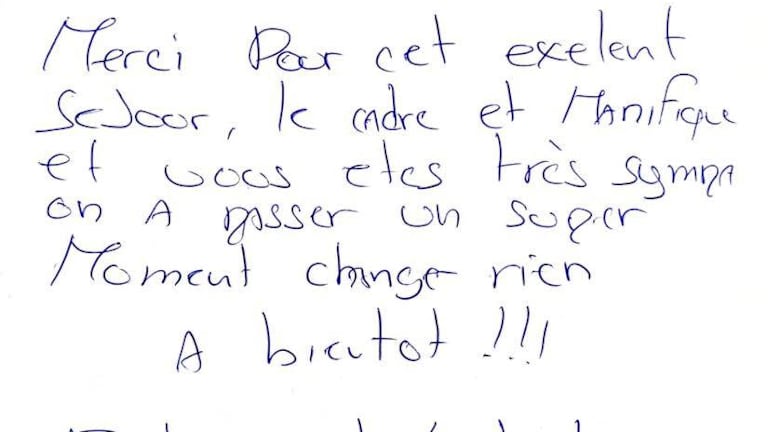 Merci Pour cet exelent
Sejour, le cadre et Manifique
et vous etes très sympa
on A passer un super
Moment change rien
A bientot !!!